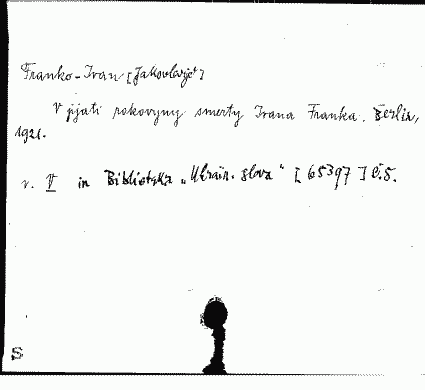 Franko-Ivan [Jakovlevyč]
V pjati rokovyny smerty Ivana Franka. Berlin,
1921.
v. V in Biblioteka „Ukrain. slova“ [65397] č.5.
S